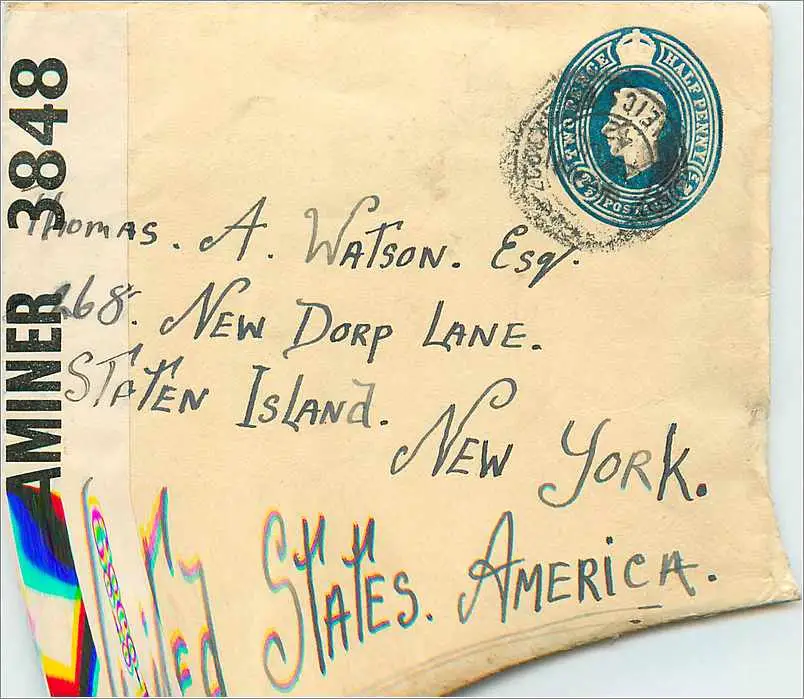 AMINER 3848
TWO PENCE HALF PENNY
POSTAGE
Thomas. A. Watson. Esq.
268. New Dorp Lane.
Staten Island.
New York.
United States. America.